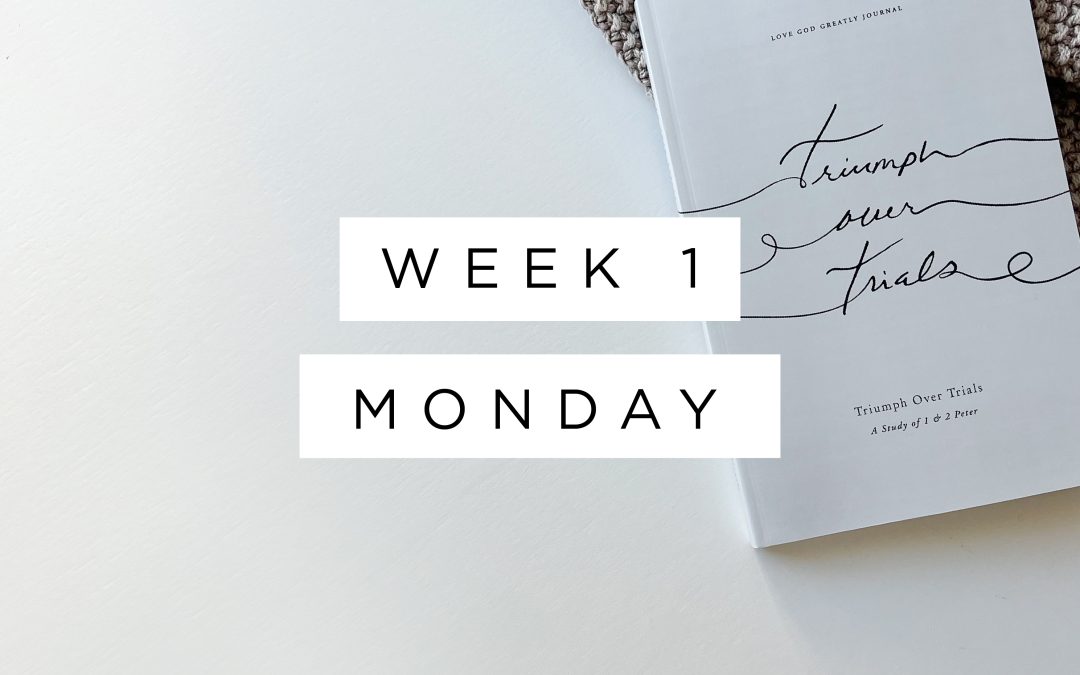 LOVE GOD GREATLY JOURNAL
Triumph
over
Trials
WEEK 1
MONDAY
Triumph Over Trials
A Study of 1 & 2 Peter